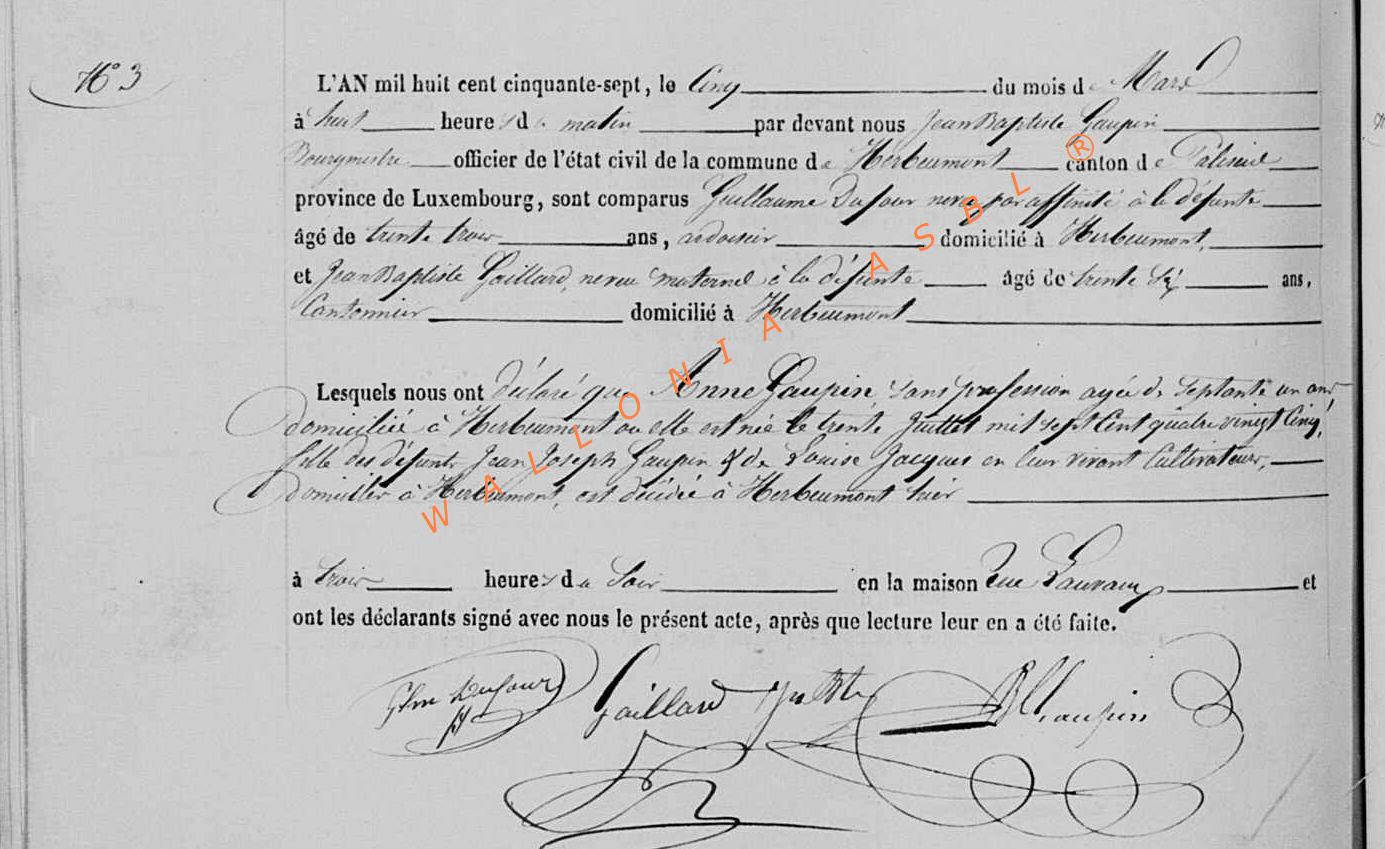 N° 3
L'AN mil huit cent cinquante-sept, le Cinq du mois de Mars
à huit heures du matin par devant nous Jean Baptiste Gaupin
Bourgmestre officier de l'état civil de la commune de Herbeumont canton de Paliseul
province de Luxembourg, sont comparus Guillaume Dufour neveu par affinité à la défunte
âgé de trente trois ans, ardoisier domicilié à Herbeumont,
et Jean Baptiste Gaillard, neveu maternel à la défunte âgé de trente six ans,
Cantonnier domicilié à Herbeumont
Lesquels nous ont déclaré que Anne Gaupin, sans profession agée de septante un ans,
domiciliée à Herbeumont ou elle est née le trente Juillet mil sept Cent quatre vingt Cinq,
fille des défunts Jean Joseph Gaupin & de Louise Jacques en leur vivant Cultivateurs,
domiciliés à Herbeumont, est décédée à Herbeumont hier
à trois heures du Soir en la maison rue et
ont les déclarants signé avec nous le présent acte, après que lecture leur en a été faite.
Dufour Gaillard Jn Bte Gaupin
WALLONIA ASBL ®